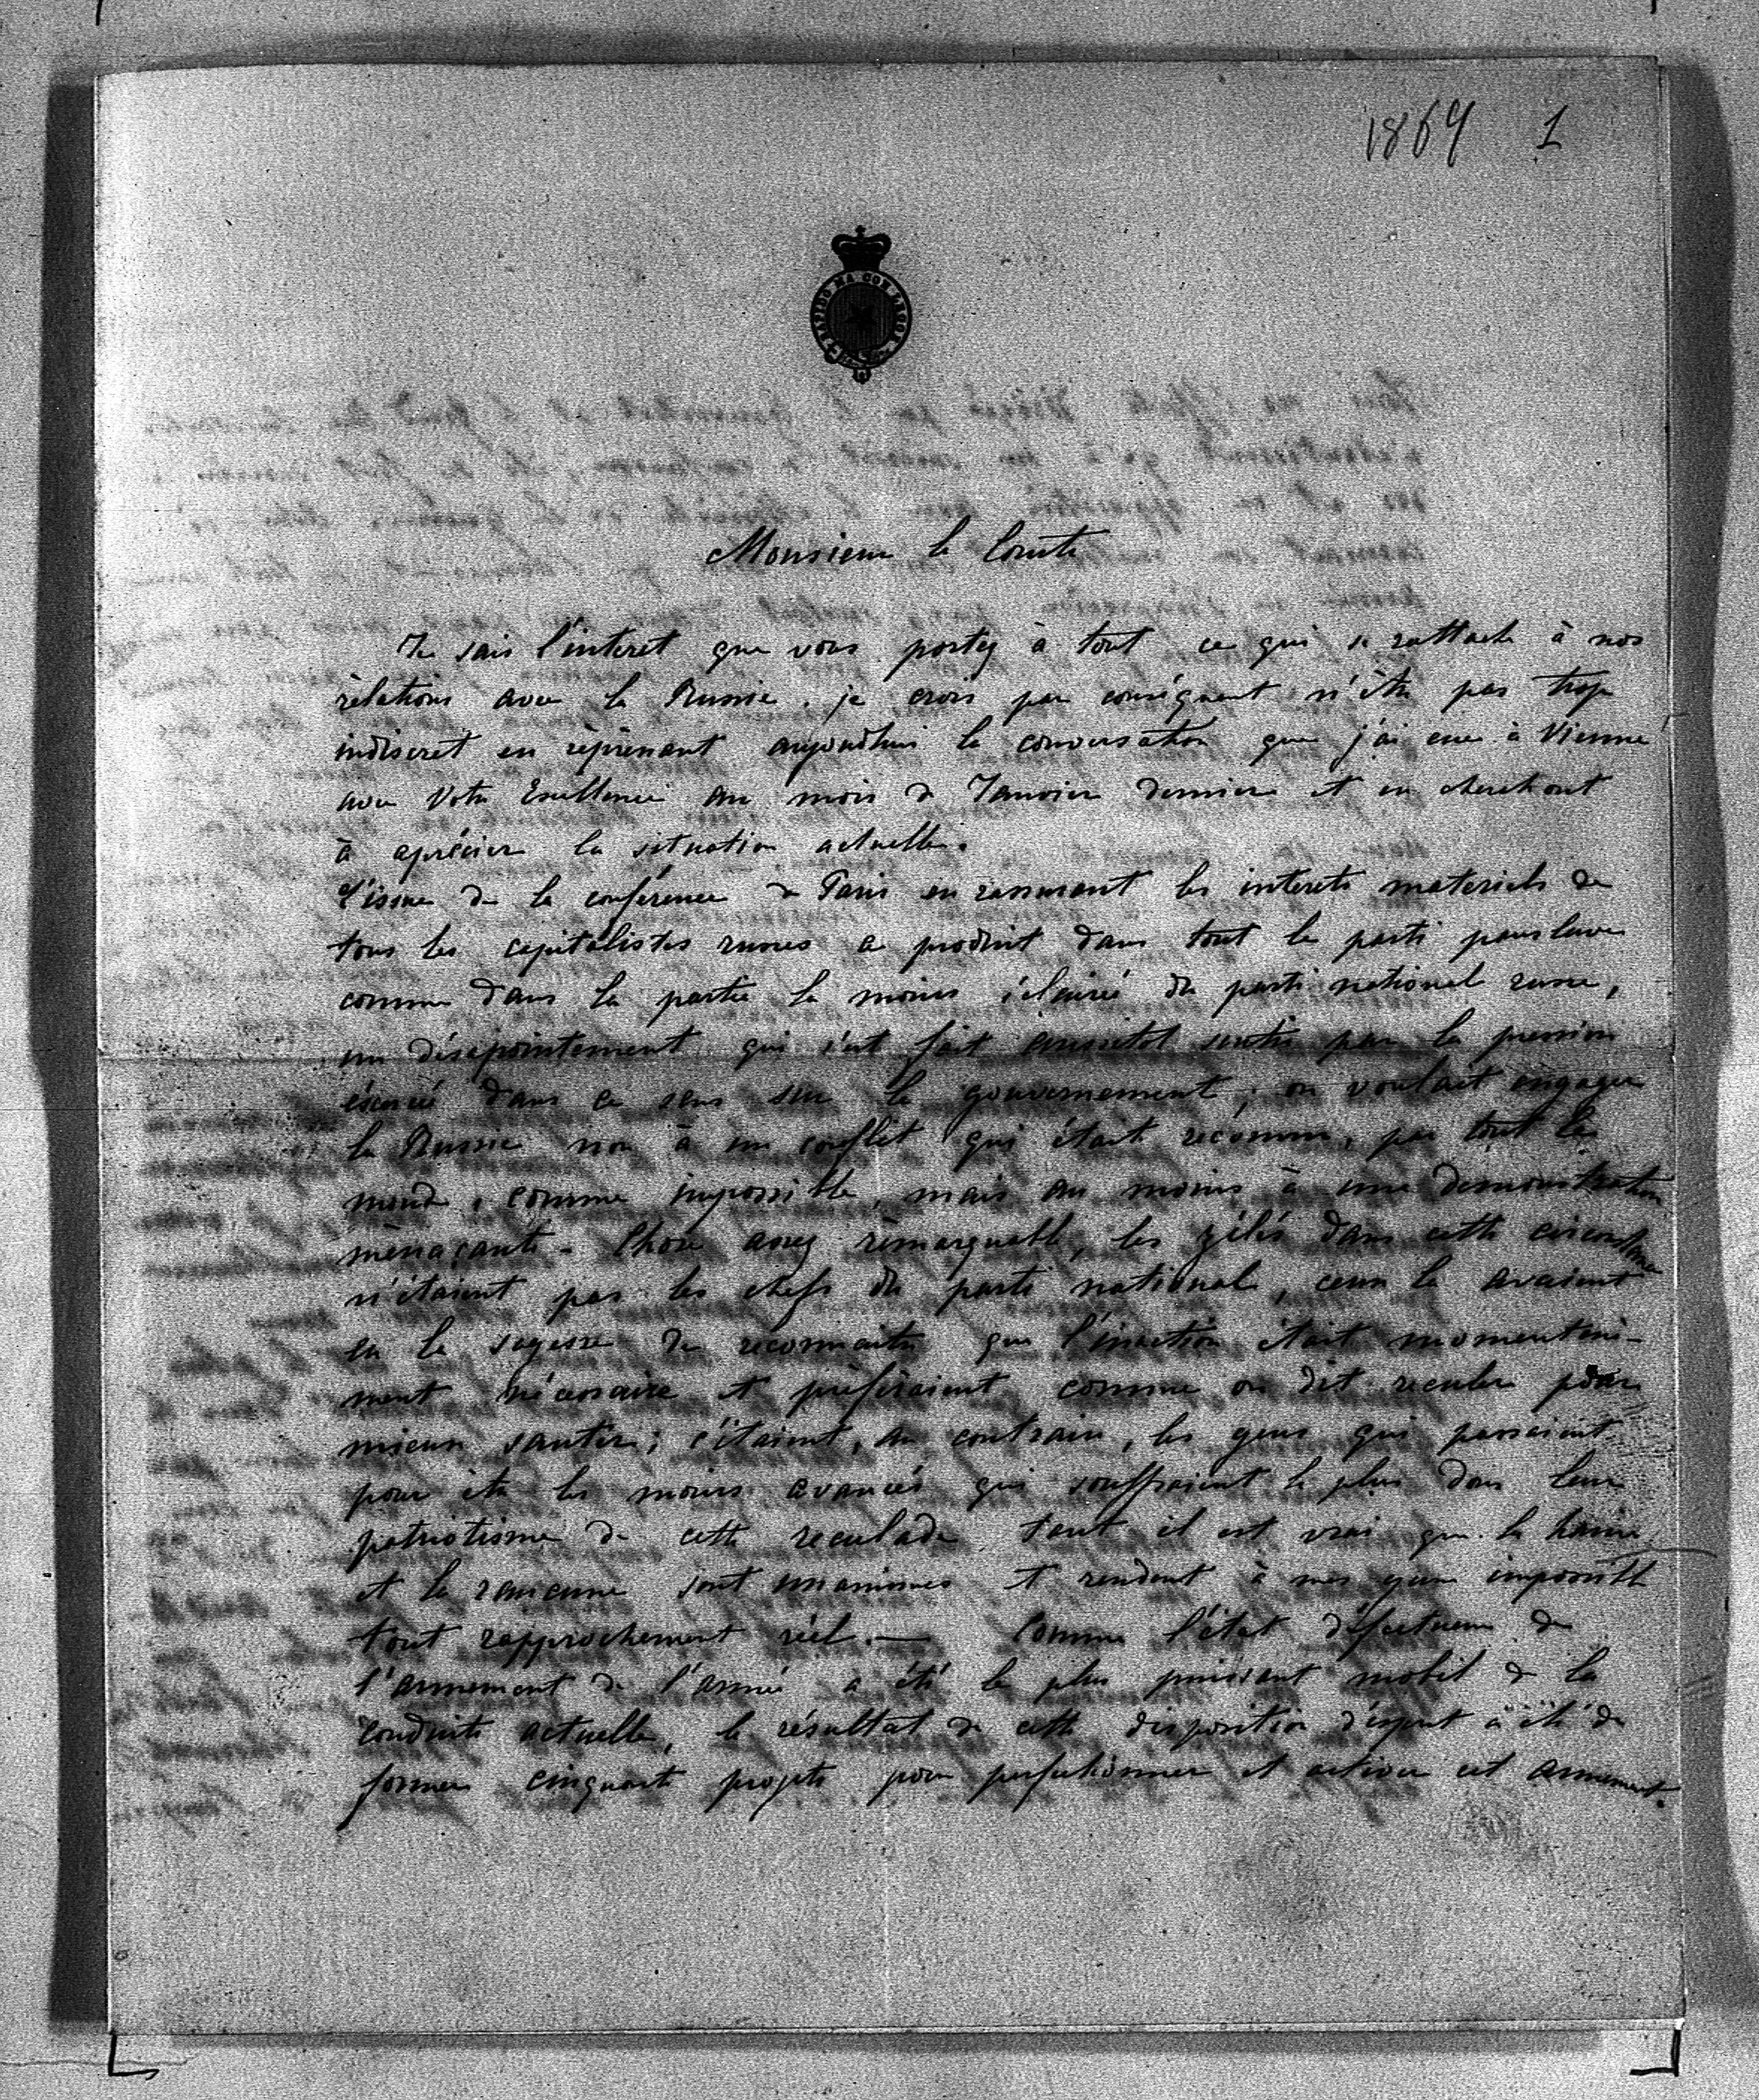 1869 1
RAPIDO MA CON LEGGE
Monsieur le Comte
Je sais l'interet que vous portez à tout ce qui se rattache à nos
rélations avec la Russie. je crois par conséquent n'être pas trop
indiscret en réprenant aujourdhui la conversation que j'ai eue à Vienne
avec Votre Excellence au mois de Janvier dernier et en cherchant
à aprécier la situation actuelle.
L'issue de la conférence de Paris en rassurant les interets materiels de
tous les capitalistes russes a produit dans tout le parti panslave
comme dans la partie la moins éclairée du parti national russe,
un désapointement qui s'est fait aussitot sentir par la pression
éxercée dans ce sens sur le gouvernement; on voulait engager
la Russie non à un conflit qui était reconnu, par tout le
monde, comme impossible, mais au moins à une demonstration
ménaçante - Chose assez rémarquable, les zélés dans cette circonstance
n'étaient pas les chefs du parti national, ceux la avaient
eu la sagesse de reconnaitre que l'inaction était momentané-
ment nécessaire et préféraient comme on dit reculer pour
mieux sauter; c'étaient, au contraire, les gens qui passaient
pour être les moins avancés qui souffraient le plus dans leur
patriotisme de cette reculade tant il est vrai que la haine
et la rancune sont unanimes et rendent à mes yeux impossible
tout rapprochement réel. — Comme l'état défectueux de
l'armement de l'armée a été le plus puissant mobil de la
conduite actuelle, le résultat de cette disposition d'esprit a été de
former cinquante projets pour perfectionner et activer cet armement.